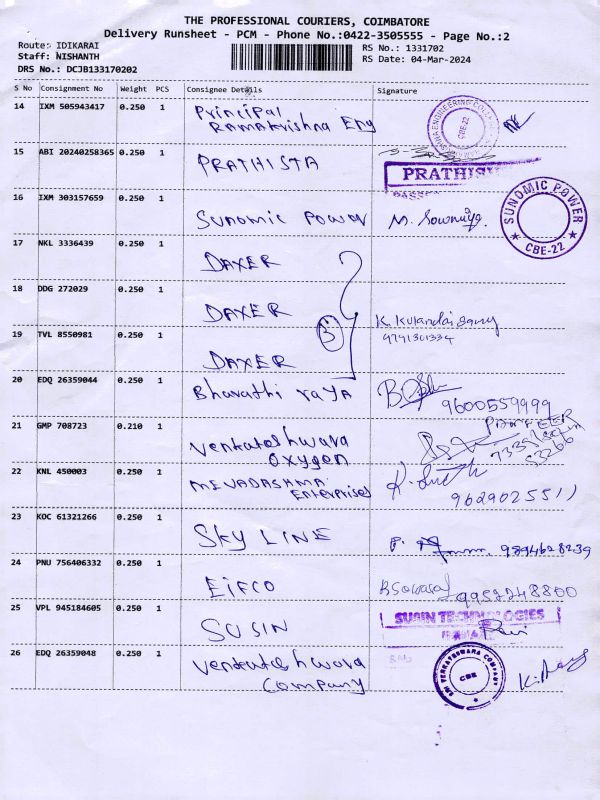 THE PROFESSIONAL COURIERS, COIMBATORE
Delivery Runsheet - PCM - Phone No.:0422-3505555 - Page No.:2
Route: IDIKARAI
RS No.: 1331702
Staff: NISHANTH
RS Date: 04-Mar-2024
DRS No.: DCJB133170202
S No Consignment No Weight PCS Consignee Details Signature
14 IXM 505943417 0.250 1 Principal
Ramakrishna Eng
CBE-22
15 ABI 20240258365 0.250 1 PRATHISTA
PRATHIS
16 IXM 303157659 0.250 1 Sunomic Power M. Sowmiya.
SUNOMIC POWER
CBE-22
17 NKL 3336439 0.250 1 DAXER
18 DDG 272029 0.250 1 DAXER
3
K. Kulandaisamy
9791301334
19 TVL 8550981 0.250 1 DAXER
20 EDQ 26359044 0.250 1 Bharathi raya
9600559999
21 GMP 708723 0.210 1 Venkateshwara
Oxygen
53266
22 KNL 450003 0.250 1 MEVADASHMA
Enterprises
9629025511
23 KOC 61321266 0.250 1 SKY LINE
9894628239
24 PNU 756406332 0.250 1 EIFCO
9952248800
25 VPL 945184605 0.250 1 SUSIN
SUSIN TECHNOLOGIES
26 EDQ 26359048 0.250 1 Venkateshwara
Company
SRI VENKATESWARA COMPANY
CBE